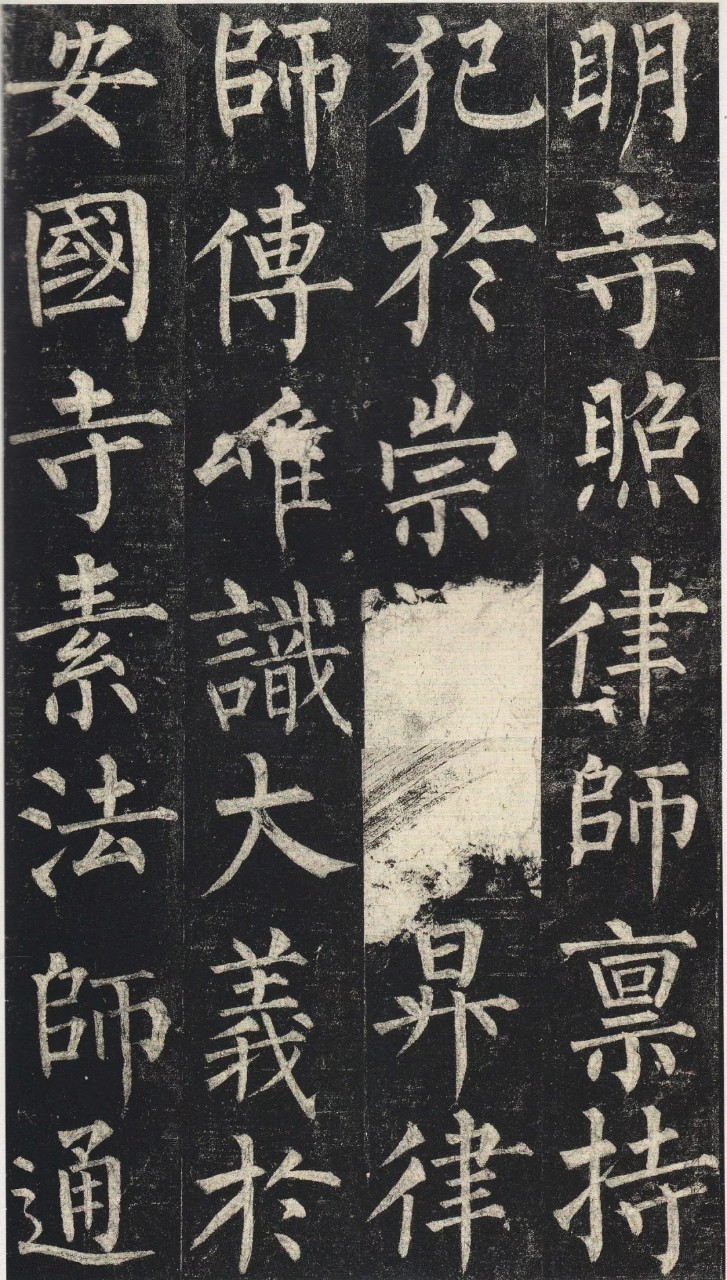 明寺照律師禀持
犯於崇昇律
師傳唯識大義於
安國寺素法師通